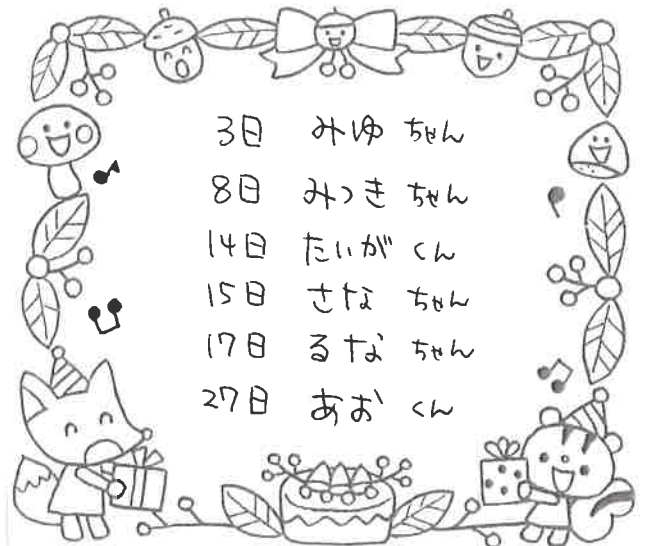 3日 みゆ ちゃん
8日 みつき ちゃん
14日 たいが くん
15日 さな ちゃん
17日 るな ちゃん
27日 あお くん